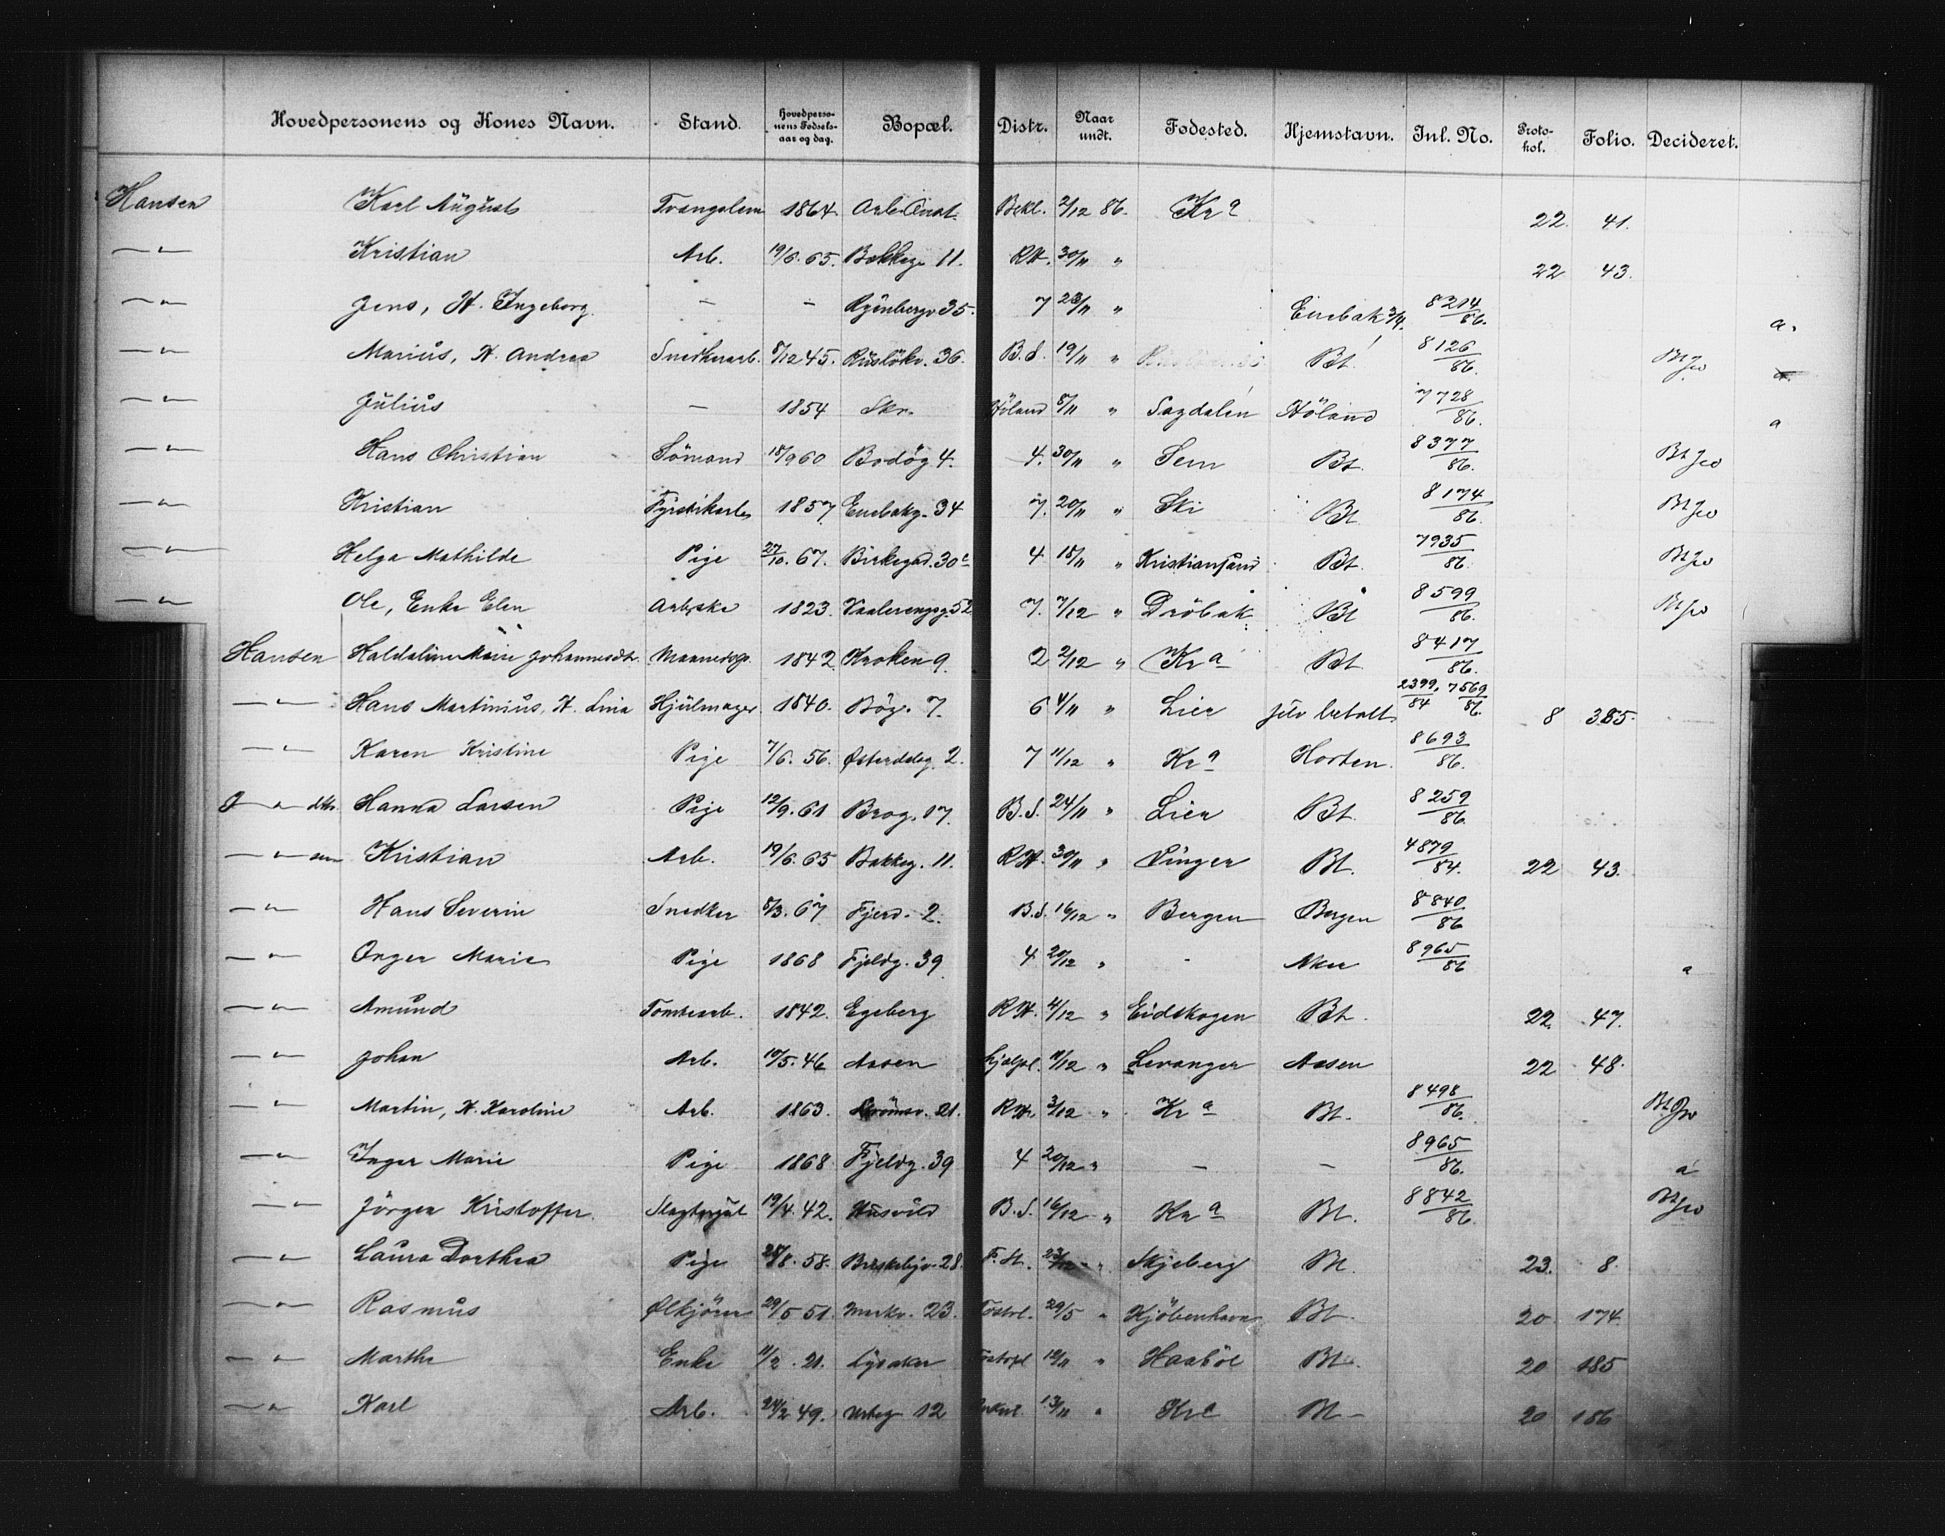 Hovedpersonens og Kones Navn. Stand. Hovedperso-nens Fødsels-aar og dag. Bopæl. Distr. Naar undt. Fødested. Hjemstavn. Inl. No. Proto-kol. Folio. Decideret.
Hansen Karl August 1864. Arb. Anst. Bekl. 2/12 86. Kra 22 41.
—"— Kristian Arb. 19/6.65. Bakkeg. 11. RH. 30/11 " 22 43.
—"— Jens, H. Ingeborg — — 35. 7 23/11 " Enebak 8214/86. a.
—"— Marius, H. Andrea Snedkerarb. 8/12 45. Ruslökv. 36. B.S. 19/11 " Bt. 8126/86.
—"— Julius — 1854 Skr. Höland 8/11 " Sagdalen Höland 7728/86. a
—"— Hans Christian Sömand 18/9 60 Bodög 4. 4. 30/11 " Sem Bt. 8377/86.
—"— Kristian Fyrstikarb. 1857 Enebakg. 34 7. 20/11 " Ski Bt 8174/86.
—"— Helga Mathilde Pige 27/10.67. Birkegad. 30c 4 18/11 " Kristianssand Bt. 7935/86.
—"— Ole, Enke Elen Arbske 1823. Vaalerengsg. 52 7. 7/12 " Dröbak Bt 8599/86.
Hansen Haldaline Marie Johannesdtr. Maanedsp. 1842 Kroken 9. 2 2/12 " Kra Bt. 8417/86.
—"— Hans Martinius, H. Lina Hjulmager 1840. Bög. 7. 6 4/11 " Lier selv betalt. 2399/84, 7569/86. 8 385.
—"— Karen Kristine Pige 7/6. 56. Østerdalsg. 2. 7 11/12 " Kra Horten. 8693/86.
—"— dtr. Hanna Larsen Pige 12/9. 61 Brog. 17. B.S. 24/11 " Lier Bt. 8259/86
—"— sen Kristian Arb. 19/6.65 Bakkeg. 11. RH. 30/11 " Bt. 4879/84. 22 43.
—"— Hans Severin Snedker 8/3. 67 Fjerd. 2. B.S. 16/12 " Bergen Bergen 8840/86
—"— Inger Marie Pige 1868 Fjeldg. 39 4 20/12 " - Aker 8965/86 a
—"— Amund Tomtearb. 1842. Egeberg RH. 4/12 " Eidskogen Bt. 22. 47.
—"— Johan Arb. 10/5. 46 Aasen Hjælpl. 11/12 " Levanger Aasen 22 48.
—"— Martin, H. Karoline Arb. 1863. Strömsv. 21. RH. 3/12 " Kra Bt. 8498/86.
—"— Inger Marie Pige 1868. Fjeldg. 39 4 20/12 " — — 8965/86. a
—"— Jörgen Kristoffer. 19/4. 42. Husvild B.S. 16/12 " Kra Bt. 8842/86.
—"— Laura Dorthea Pige 28/8. 58. Briskebyv. 28. F.St. 23/12 " Skjeberg Bt. 23. 8.
—"— Rasmus Ølkjörer 29/5 51. Markv. 23. 29/5 " Kjöbenhavn Bt. 20. 174.
—"— Marthe Enke 11/2. 21. Lysaker " Haaböl Bt. 20 185
—"— Karl Arb. 24/2 49. Urteg 12 13/11 " Kra Bt — 20 186